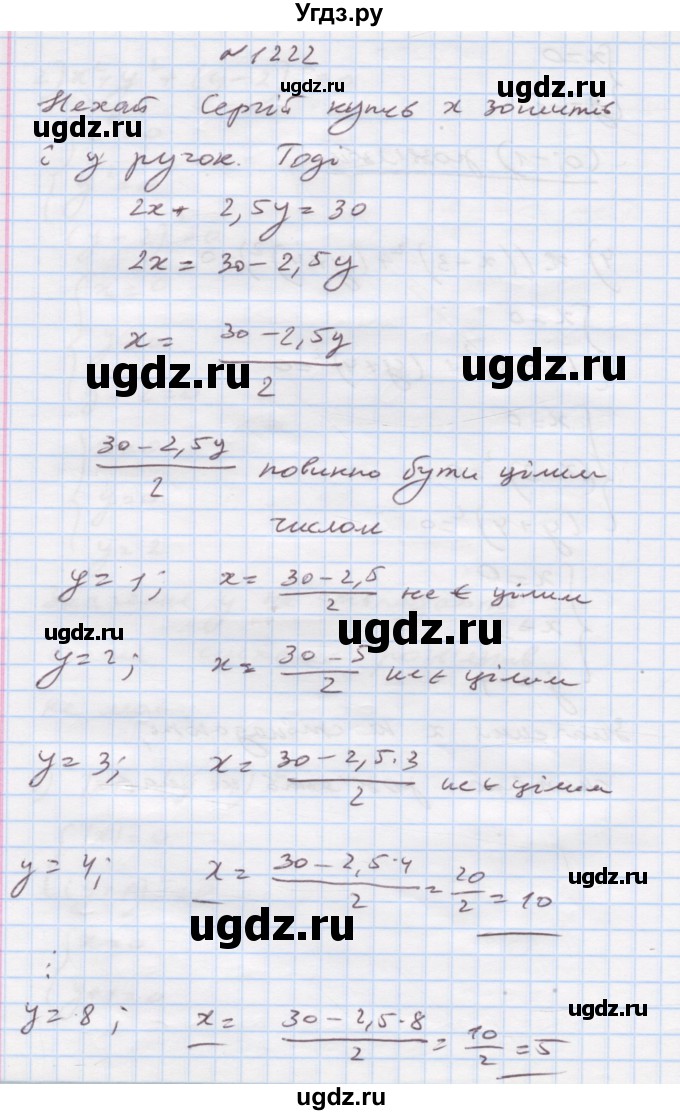 Угдз.ру
№1222
Нехай Сергій купив x зошитів
і y ручок. Тоді
2x + 2,5y = 30
2x = 30 - 2,5y
x = (30 - 2,5y)/2
(30 - 2,5y)/2 повинно бути цілим
числом
y = 1; x = (30 - 2,5)/2 не є цілим
y = 2; x = (30 - 5)/2 не є цілим
y = 3; x = (30 - 2,5·3)/2 не є цілим
y = 4; x = (30 - 2,5·4)/2 = 20/2 = 10
⋮
y = 8; x = (30 - 2,5·8)/2 = 10/2 = 5
ugdz.ru
ugdz.ru
ugdz.ru
ugdz.ru
ugdz.ru
ugdz.ru
ugdz.ru
ugdz.ru
ugdz.ru
Угдз.ру